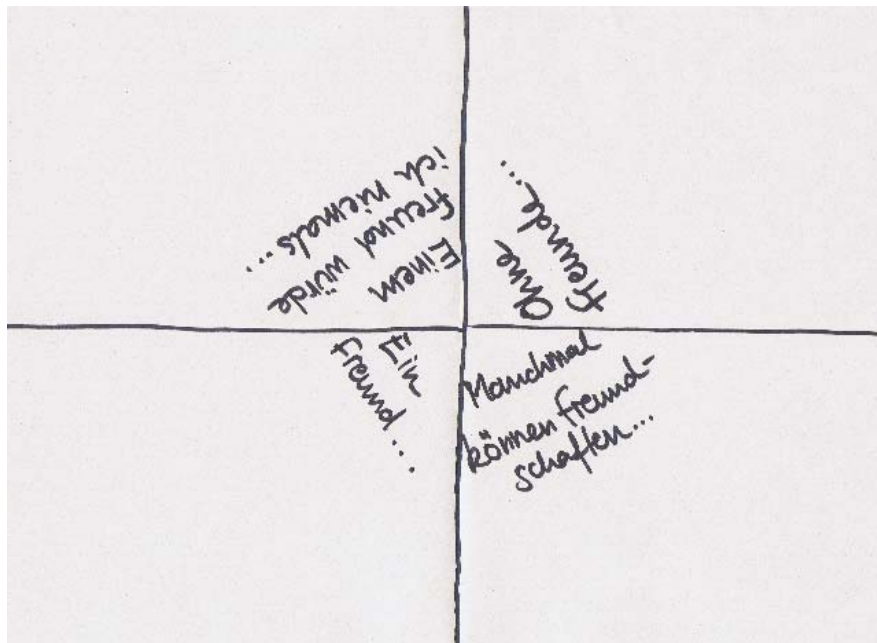 Einem
Freund würde
ich niemals...
Ohne
Freunde...
Ein
Freund...
Manchmal
können Freund-
schaften...